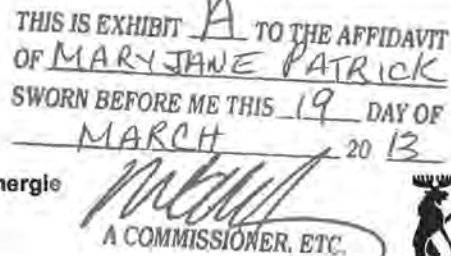 THIS IS EXHIBIT A TO THE AFFIDAVIT
OF MARY JANE PATRICK
SWORN BEFORE ME THIS 19 DAY OF
MARCH 20 13
nergie
A COMMISSIONER, ETC.